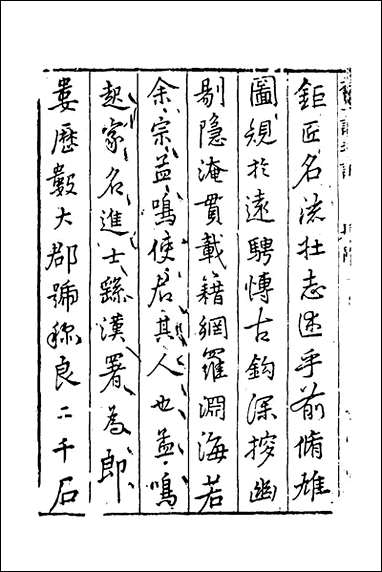 鉅匠名流壯志乎前脩雄
圖規於遠騁博古鉤深幽
剔隱淹貫載籍網羅淵海若
余宗孟鳴使君其人也孟鳴
起家名進士繇漢署為郎
婁歷數大郡號稱良二千石